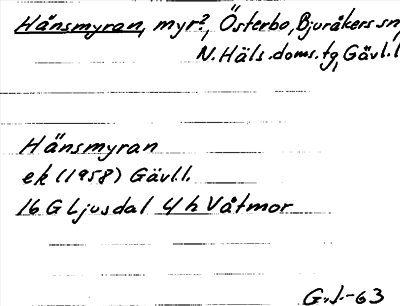 Hänsmyran, myr?, Österbo, Bjuråkers sn,
N. Häls. doms. tg, Gävl. l
Hänsmyran
ek (1958) Gävl. l.
16 G Ljusdal 4 h Våtmor
G. J. -63